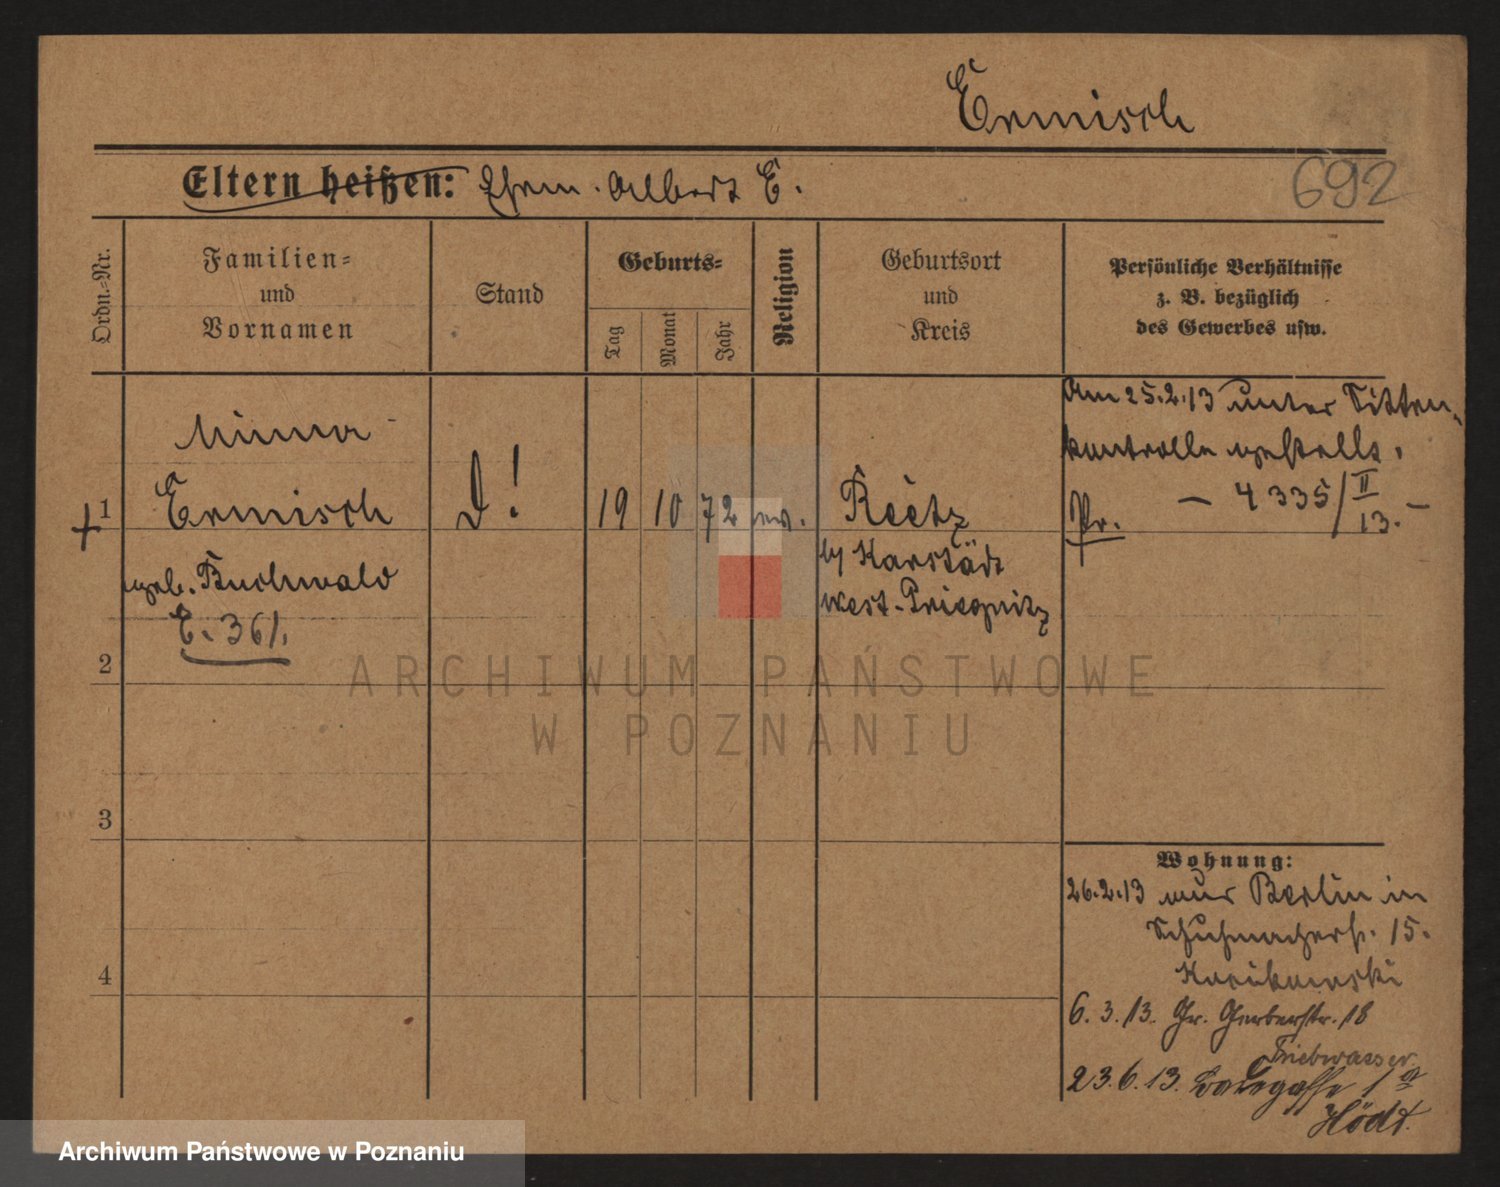 Ermisch
692
Eltern heißen: Ehem. Albert E.
Ordn.-Nr.
Familien- und Vornamen
Stand
Geburts-
Tag
Monat
Jahr
Religion
Geburtsort und Kreis
Persönliche Verhältnisse
z. B. bezüglich
des Gewerbes usw.
Minna
1 Ermisch
geb. Buchwald
E. 361.
D!
19 10 72 ev.
Reetz
b/ Karstädt
West-Priegnitz
Am 25.2.13 unter Sitten-
kontrolle gestellt.
Pr. - 4335/II 13. -
2
3
4
Wohnung:
26.2.13 aus Berlin in
Schuhmacherstr. 15.
6.3.13. Gr. Gerberstr. 18
Triebwasser
23.6.13. 1a
Hödt.
ARCHIWUM PAŃSTWOWE
W POZNANIU
Archiwum Państwowe w Poznaniu